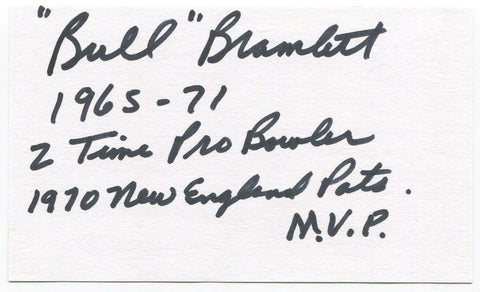 "Bull" Bramlett
1965-71
2 Time Pro Bowler
1970 New England Pats.
M.V.P.